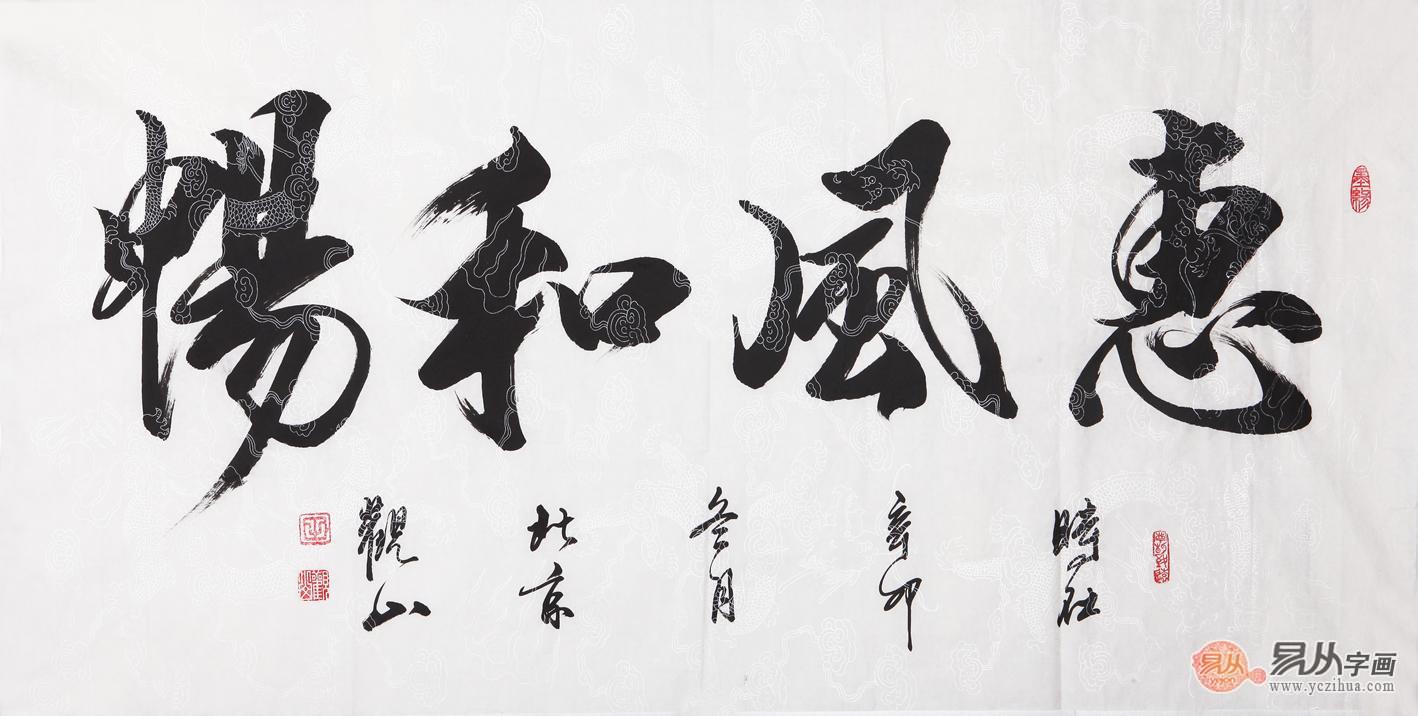 惠風和暢
時在
辛卯
冬月
北京
觀山
易从字画
www.yczihua.com